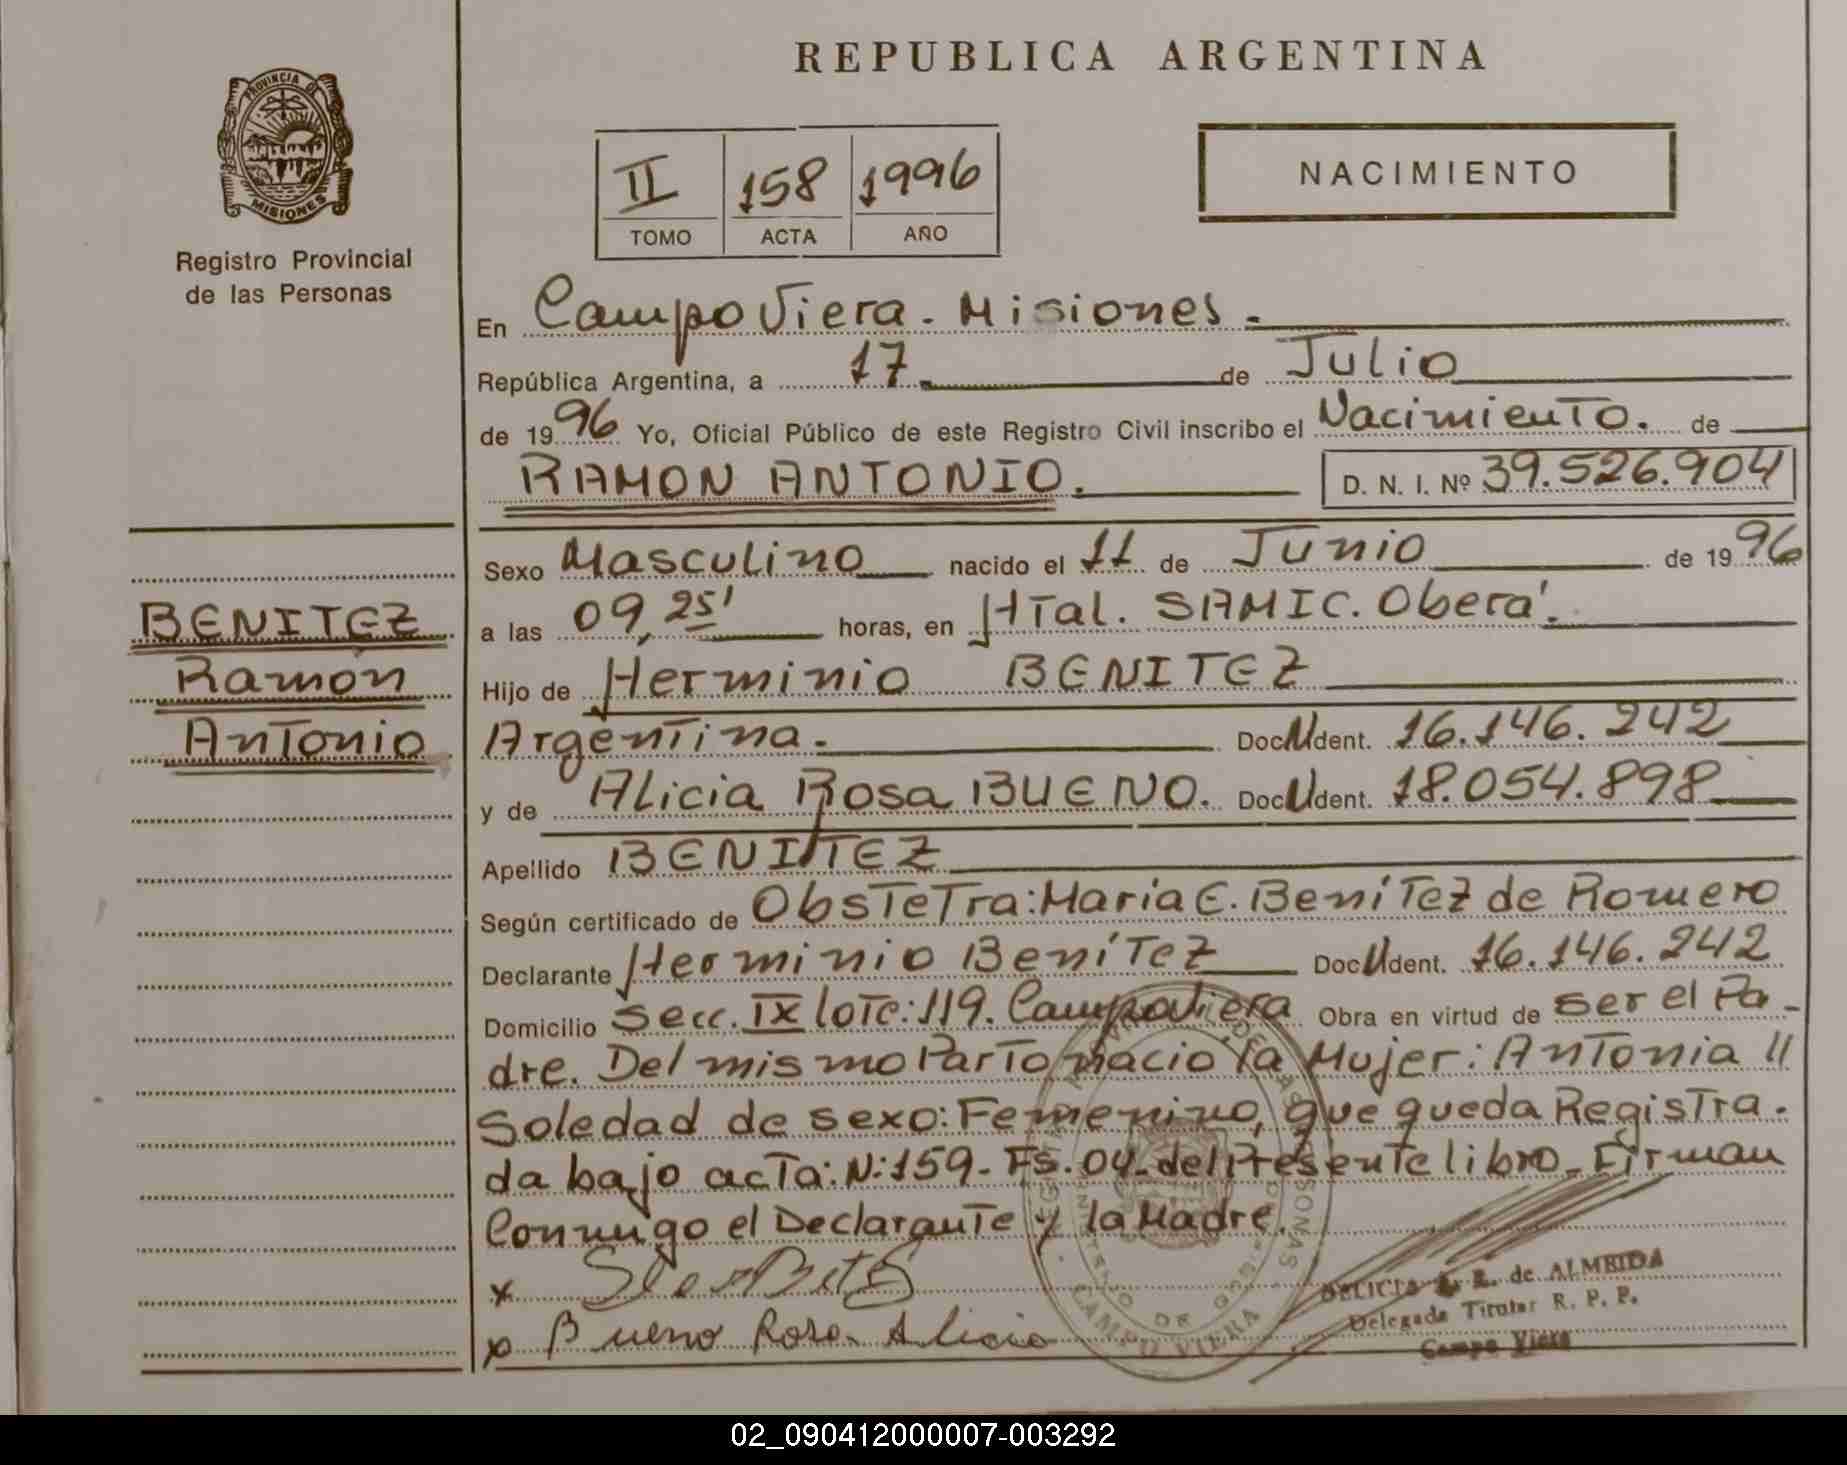 REPUBLICA ARGENTINA
PROVINCIA DE
MISIONES
Registro Provincial
de las Personas
II 158 1996
TOMO ACTA AÑO
NACIMIENTO
En Campo Viera - Misiones.
República Argentina, a 17 de Julio
de 1996 Yo, Oficial Público de este Registro Civil inscribo el Nacimiento. de
RAMON ANTONIO. D. N. I. Nº 39.526.904
Sexo Masculino nacido el 11 de Junio de 1996
a las 09,25' horas, en Htal. SAMIC. Oberá.
Hijo de Herminio BENITEZ
Argentina. Doc. Ident. 16.146.242
y de Alicia Rosa BUENO. Doc. Ident. 18.054.898
Apellido BENITEZ
Según certificado de Obstetra: Maria E. Benítez de Romero
Declarante Herminio Benítez Doc. Ident. 16.146.242
Domicilio Secc. IX lote: 119. Campo Viera Obra en virtud de ser el Pa-
dre. Del mismo Parto nacio la Mujer: Antonia //
Soledad de sexo: Femenino, que queda Registra-
da bajo acta: N: 159 - Fs. 04 - del Presente libro - Firman
Conmigo el Declarante y la Madre.
x
x Bueno Rosa Alicia
BENITEZ
Ramón
Antonio
de ALMEIDA
Delegada Titular R. P. P.
Campo Viera
CAMPO VIERA
02_090412000007-003292